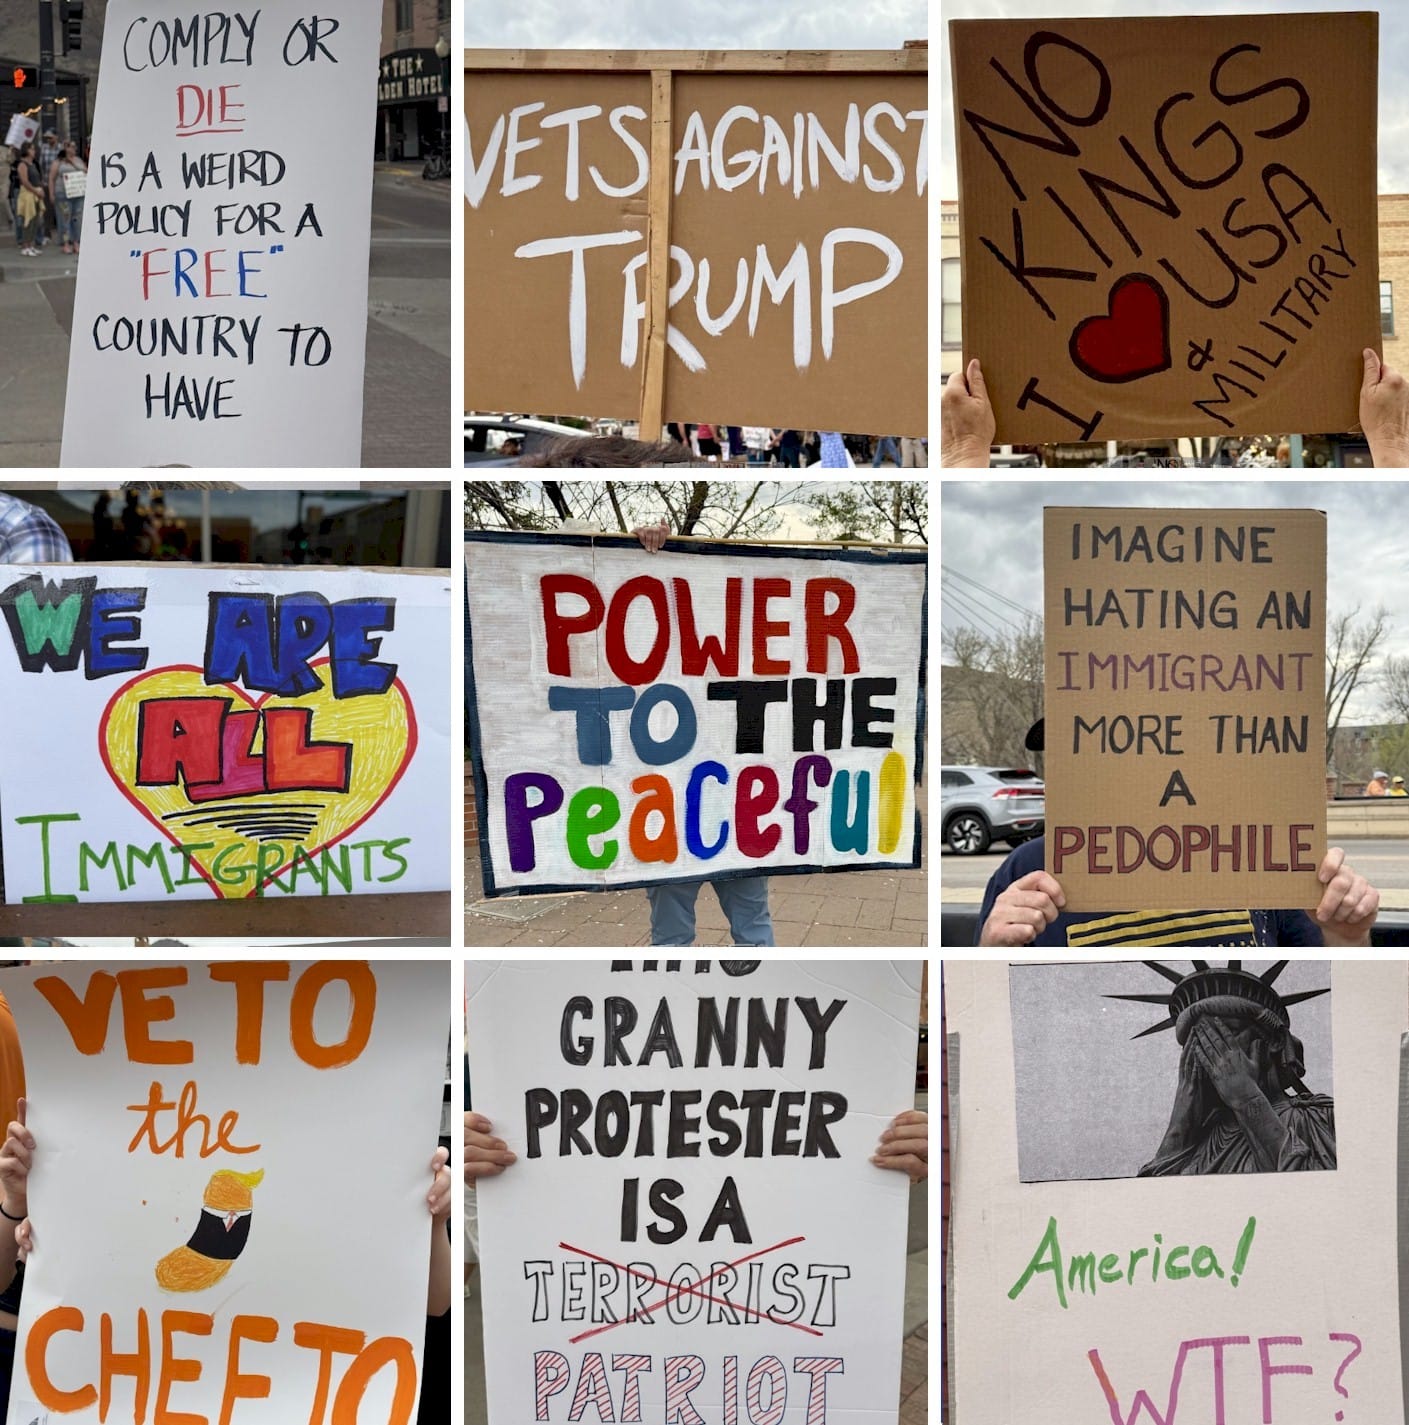 COMPLY OR
DIE
IS A WEIRD
POLICY FOR A
"FREE"
COUNTRY TO
HAVE
THE
LDEN HOTEL
VETS AGAINST
TRUMP
NO
KINGS
I ♥ USA
&
MILITARY
WE ARE
ALL
IMMIGRANTS
POWER
TO THE
Peaceful
IMAGINE
HATING AN
IMMIGRANT
MORE THAN
A
PEDOPHILE
VETO
the
CHEETO
GRANNY
PROTESTER
IS A
TERRORIST
PATRIOT
America!
WTF?